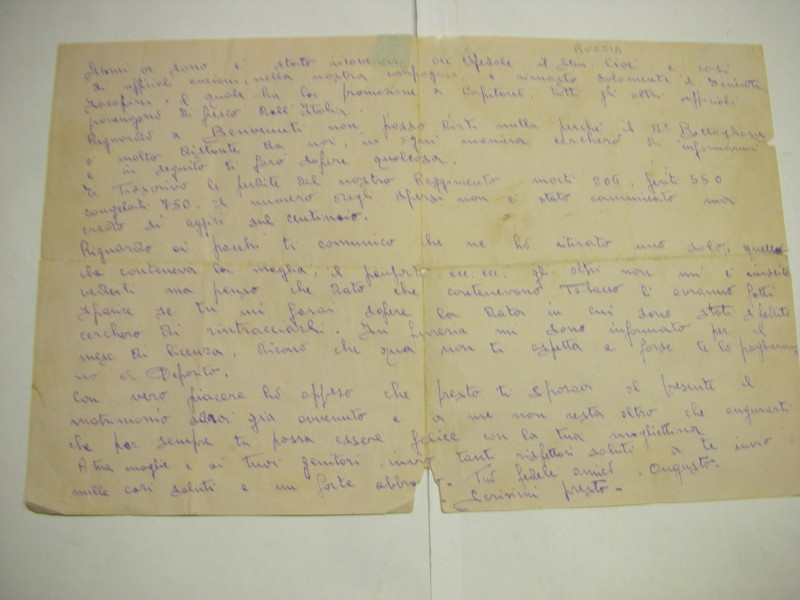 RUSSIA
sono e stato ricon il Gen. Cioè e così
di ufficiali anziani, nella nostra compagnia, è rimasto solamente il
il quale ha la promozione a Capitano. Tutti gli altri ufficiali
provengono di fresco dall'Italia.
Riguardo a Benvenuti non posso dirti nulla perché il
è molto distante da noi, in ogni maniera cercherò di informarmi
e in seguito ti farò sapere qualcosa.
Ti trascrivo le perdite del nostro Reggimento morti 206, feriti 550
congelati 750, il numero degli spersi non è stato comunicato ma
credo si aggiri sul centinaio.
Riguardo ai pacchi ti comunico che ne ho ritirato uno solo, quello
che conteneva la maglia, il panforte, ecc. ecc. gli altri non mi è
vederli ma penso che dato che contenevano Tobacco li avranno fatti
sparire se tu mi farai sapere la data in cui sono stati spediti
cercherò di rintracciarli. In fureria mi sono informato per il
mese di licenza, dicono che qua non ti aspetta e forse te lo pagheran
no al Deposito.
Con vero piacere ho appreso che presto ti sposai al presente il
matrimonio sarà già avvenuto e a me non resta altro che augurarti
che per sempre tu possa essere felice con la tua mogliettina
A tua moglie e ai tuoi genitori invio tanti rispettosi saluti a te invio
mille cari saluti e un forte abbraccio. Tuo fedele amico. Augusto.
Scrivimi presto -